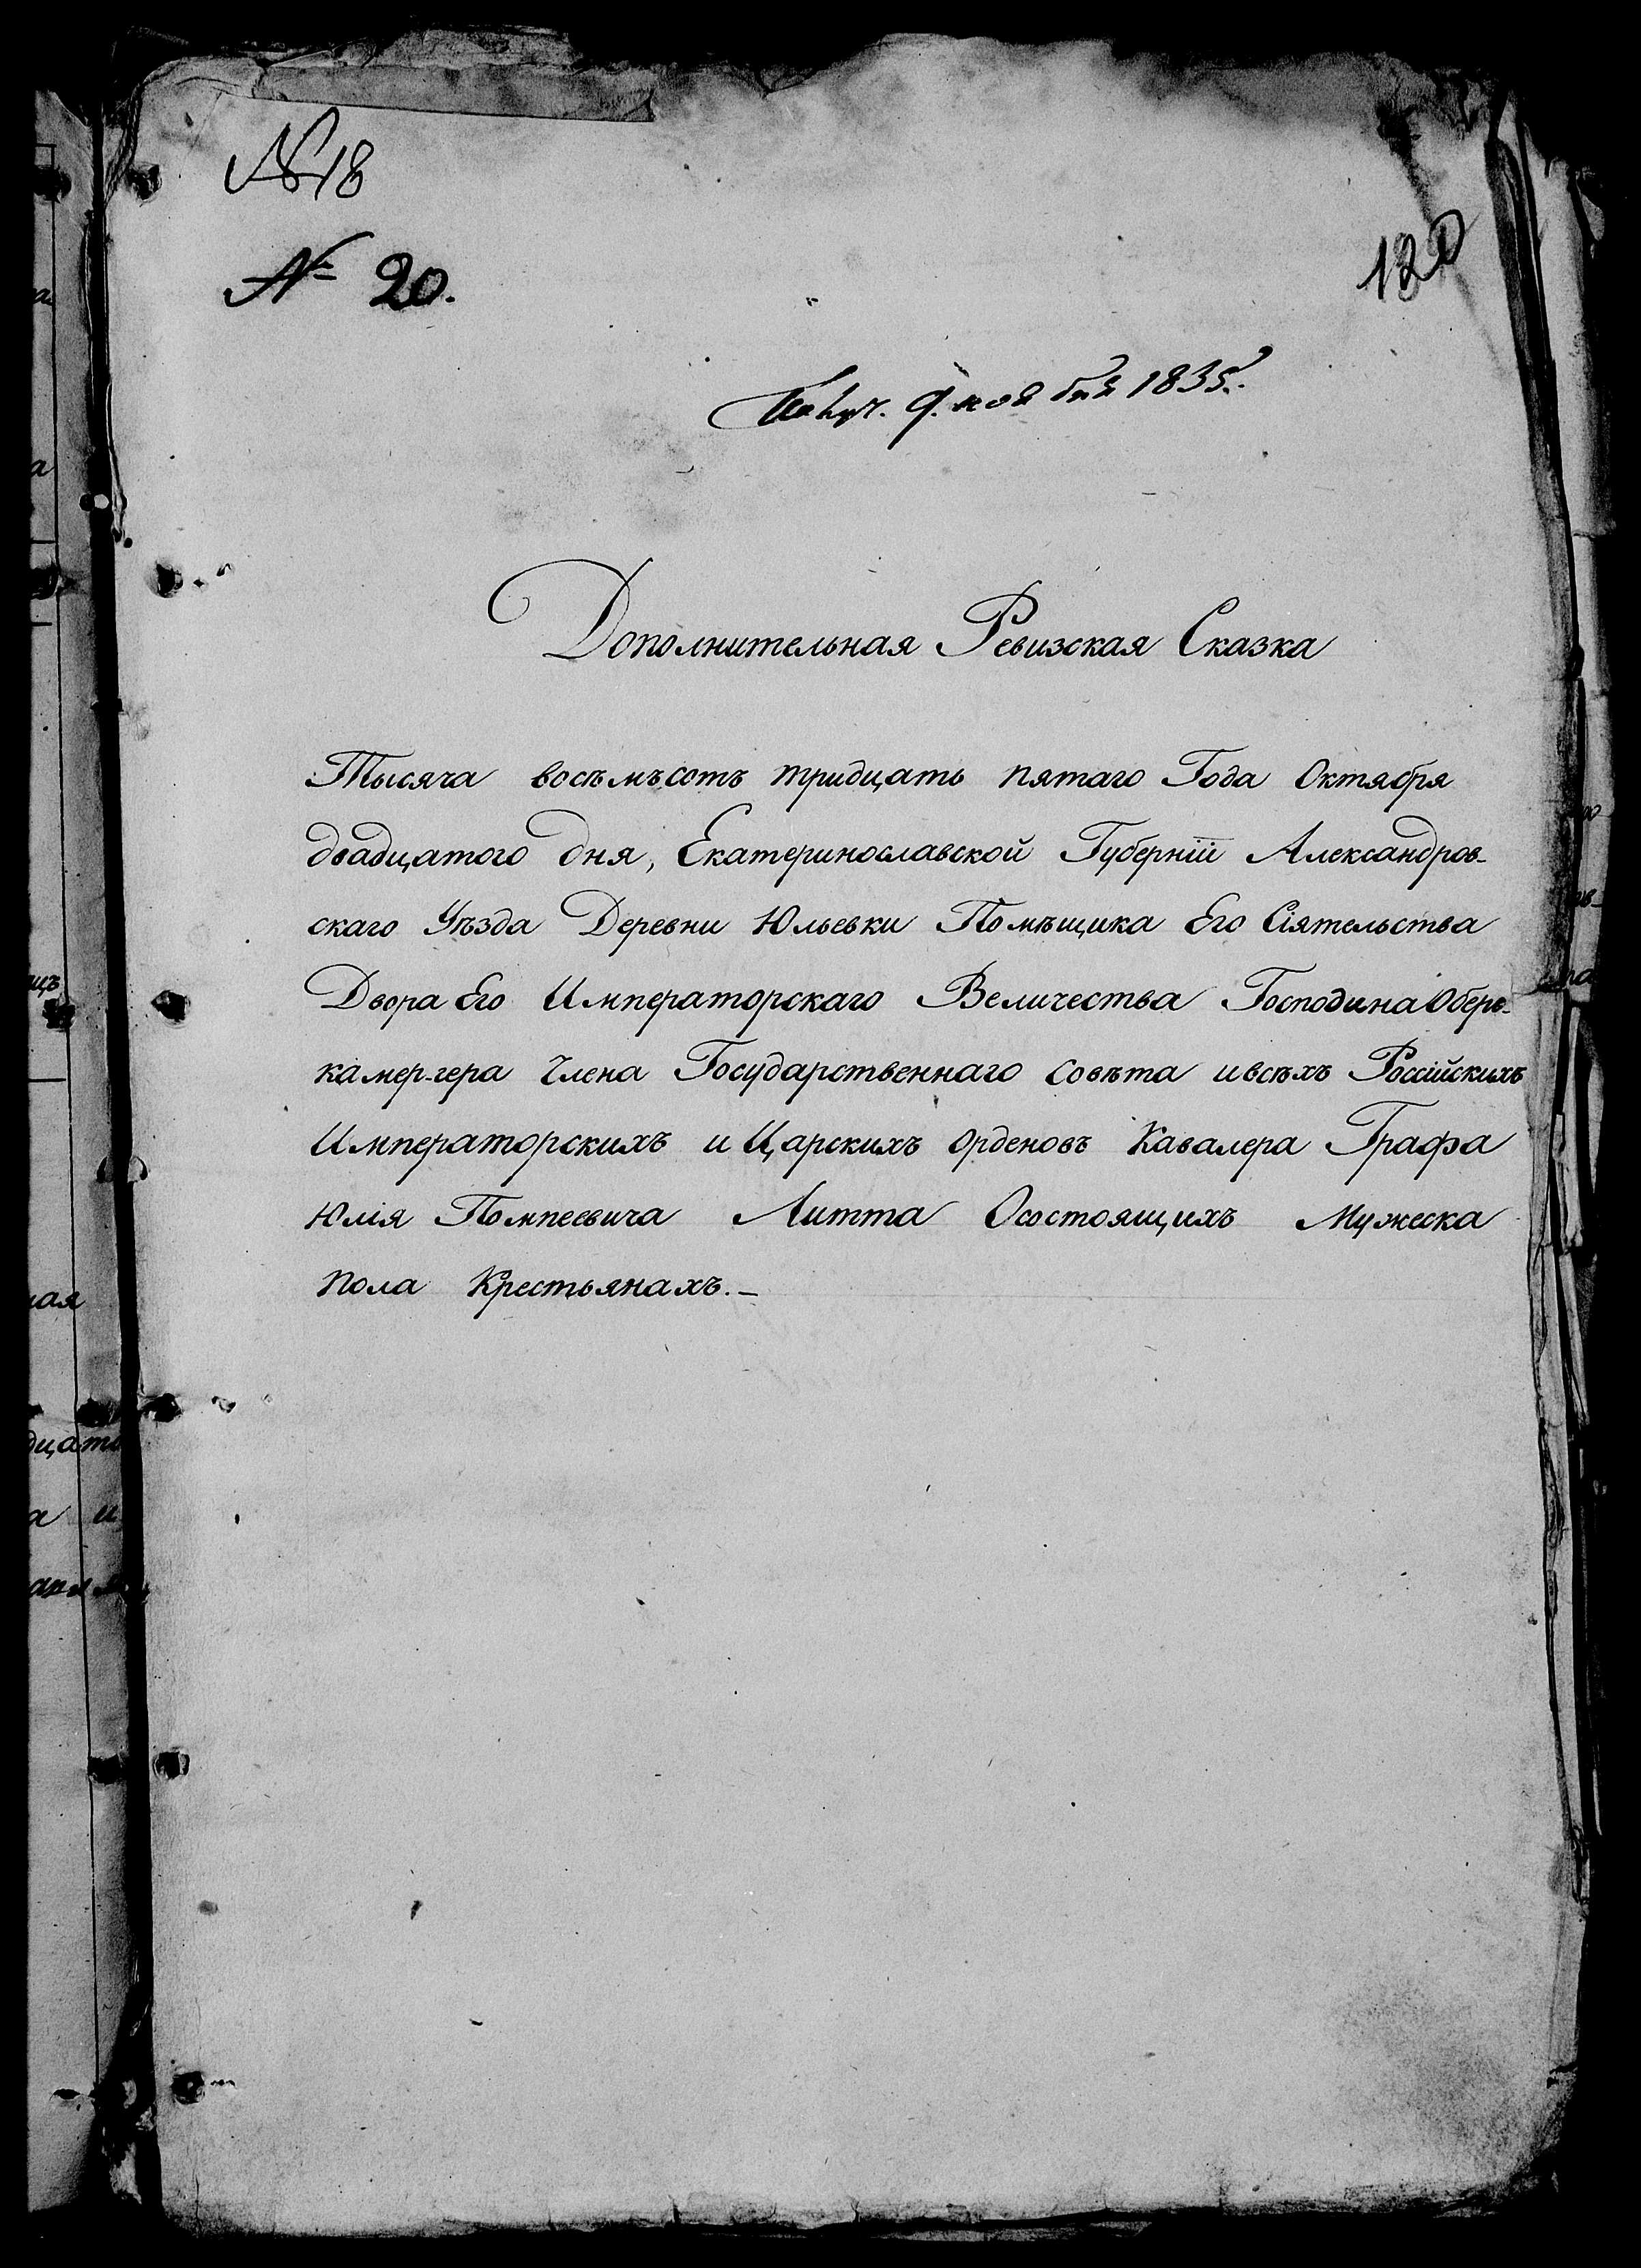 № 18
№ 20.
120
Получ. 9. ноября 1835.
Дополнительная Ревизская Сказка
Тысяча восѣмъсотъ тридцать пятаго Года Октября
двадцатого дня, Екатеринославской Губерніи Александров-
скаго Уѣзда Деревни Юльевки Помѣщика Его Сіятельства
Двора Его Императорскаго Величества Господина Оберъ-
камер-гера Члена Государственнаго совѣта ивсѣхъ Россійскихъ
Императорскихъ и Царскихъ Орденовъ Кавалера Графа
Юлія Помпеевича Литта Осостоящихъ Мужеска
пола Крестьянахъ.—